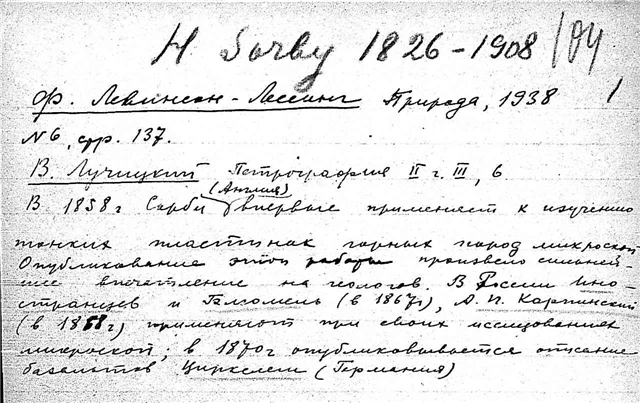 H Sorby 1826-1908
Ф. Левинсон-Лессинг Природа, 1938 1
N 6, стр. 137.
В. Лучицкий Петрография II г. III, 6
(Англия)
В 1858 г Сорби впервые применяет к изучению
тонких пластинок горных пород микроскоп
Опубликование этой работы произвело сильней-
шее впечатление на геологов. В России Ино-
странцев и (в 1867г), А. П. Карпинский
(в 1868 г) применяют при своих исследованиях
микроскоп; в 1870г опубликовывается описание
базальтов Циркелем (Германия)